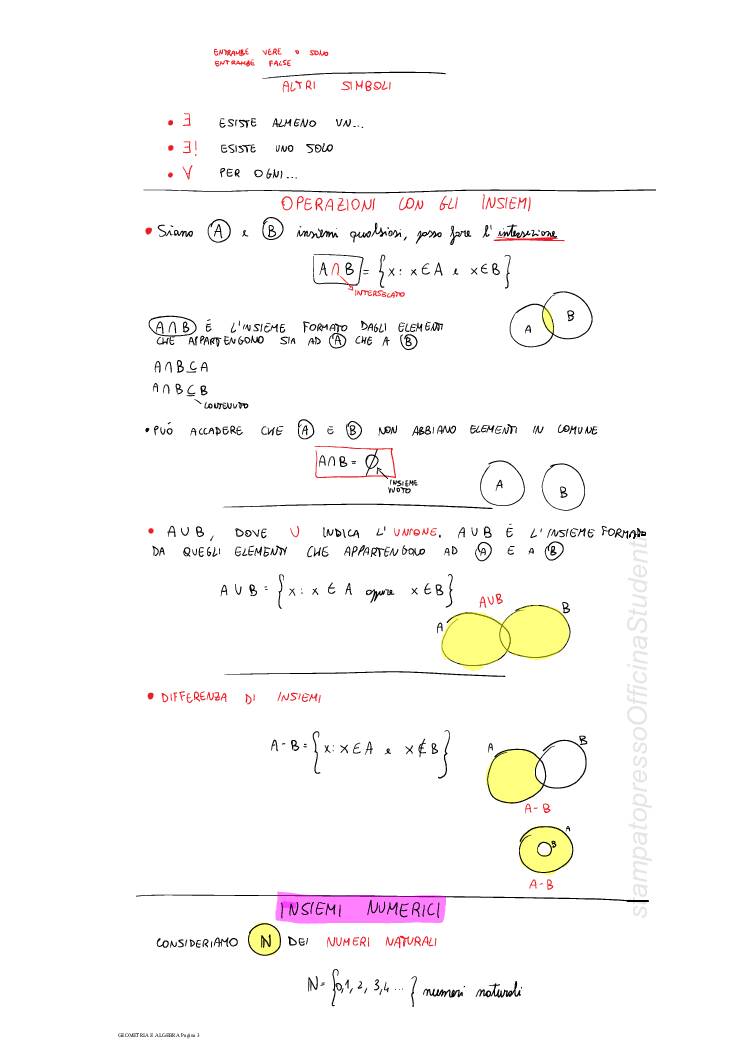 ENTRAMBE VERE O SONO
ENTRAMBE FALSE
ALTRI SIMBOLI
• ∃ ESISTE ALMENO UN...
• ∃! ESISTE UNO SOLO
• ∀ PER OGNI...
OPERAZIONI CON GLI INSIEMI
• Siano A e B insiemi qualsiasi, posso fare l'intersezione
A∩B = {x : x ∈ A e x ∈ B}
INTERSECATO
A∩B É L'INSIEME FORMATO DAGLI ELEMENTI
CHE APPARTENGONO SIA AD A CHE A B
A B
A∩B ⊆ A
A∩B ⊆ B
CONTENUTO
• PUÓ ACCADERE CHE A E B NON ABBIANO ELEMENTI IN COMUNE
A∩B = ∅
INSIEME
VUOTO
A B
• A∪B, DOVE ∪ INDICA L'UNIONE. A∪B É L'INSIEME FORMATO
DA QUEGLI ELEMENTI CHE APPARTENGONO AD A E A B
A∪B = {x : x ∈ A oppure x ∈ B}
A A∪B B
• DIFFERENZA DI INSIEMI
A-B = {x : x ∈ A e x ∉ B}
A B
A-B
A
B
A-B
INSIEMI NUMERICI
CONSIDERIAMO ℕ DEI NUMERI NATURALI
ℕ = {0,1, 2, 3,4 ...} numeri naturali
GEOMETRIA E ALGEBRA Pagina 3
stampatopressoOfficinaStudenti